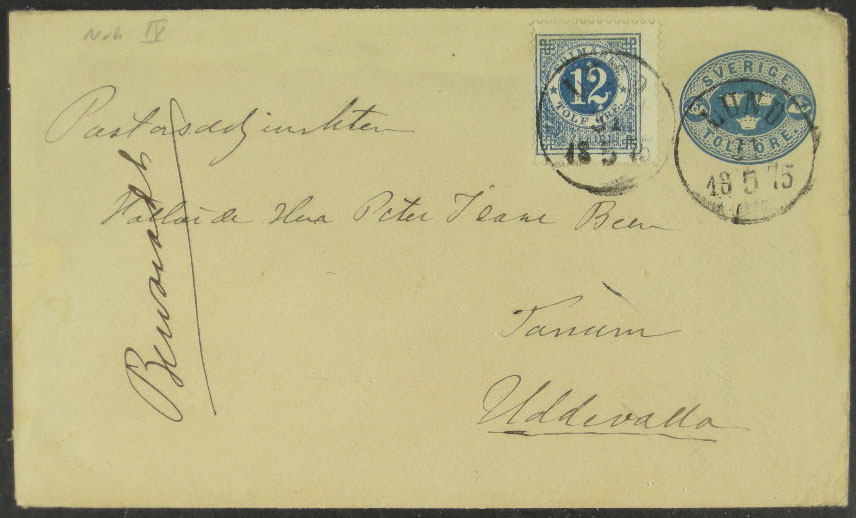 Nvh IV
FRIMÄRKE
12
TOLF ÖRE.
LUND
31
18 5 75
SVERIGE
TOLF ÖRE.
LUND
31
18 5 75
Pastorsadjunkten
Herr Peter Isaac Been
Tanum
Uddevalla
Bewaradt